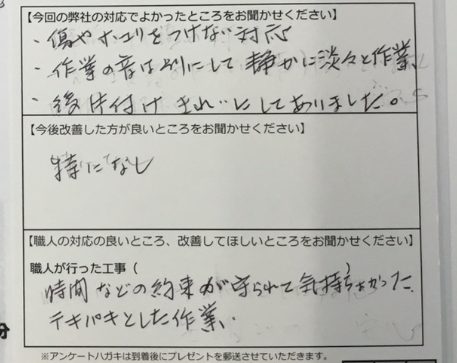 【今回の弊社の対応でよかったところをお聞かせください】
・傷やホコリをつけない対応
・作業の音は別にして静かに淡々と作業、
・後片付けきれいにしてありました。
【今後改善した方が良いところをお聞かせください】
特になし
【職人の対応の良いところ、改善してほしいところをお聞かせください】
職人が行った工事( )
時間などの約束が守られて気持ちよかった。
テキパキとした作業、
※アンケートハガキは到着後にプレゼントを郵送させていただきます。